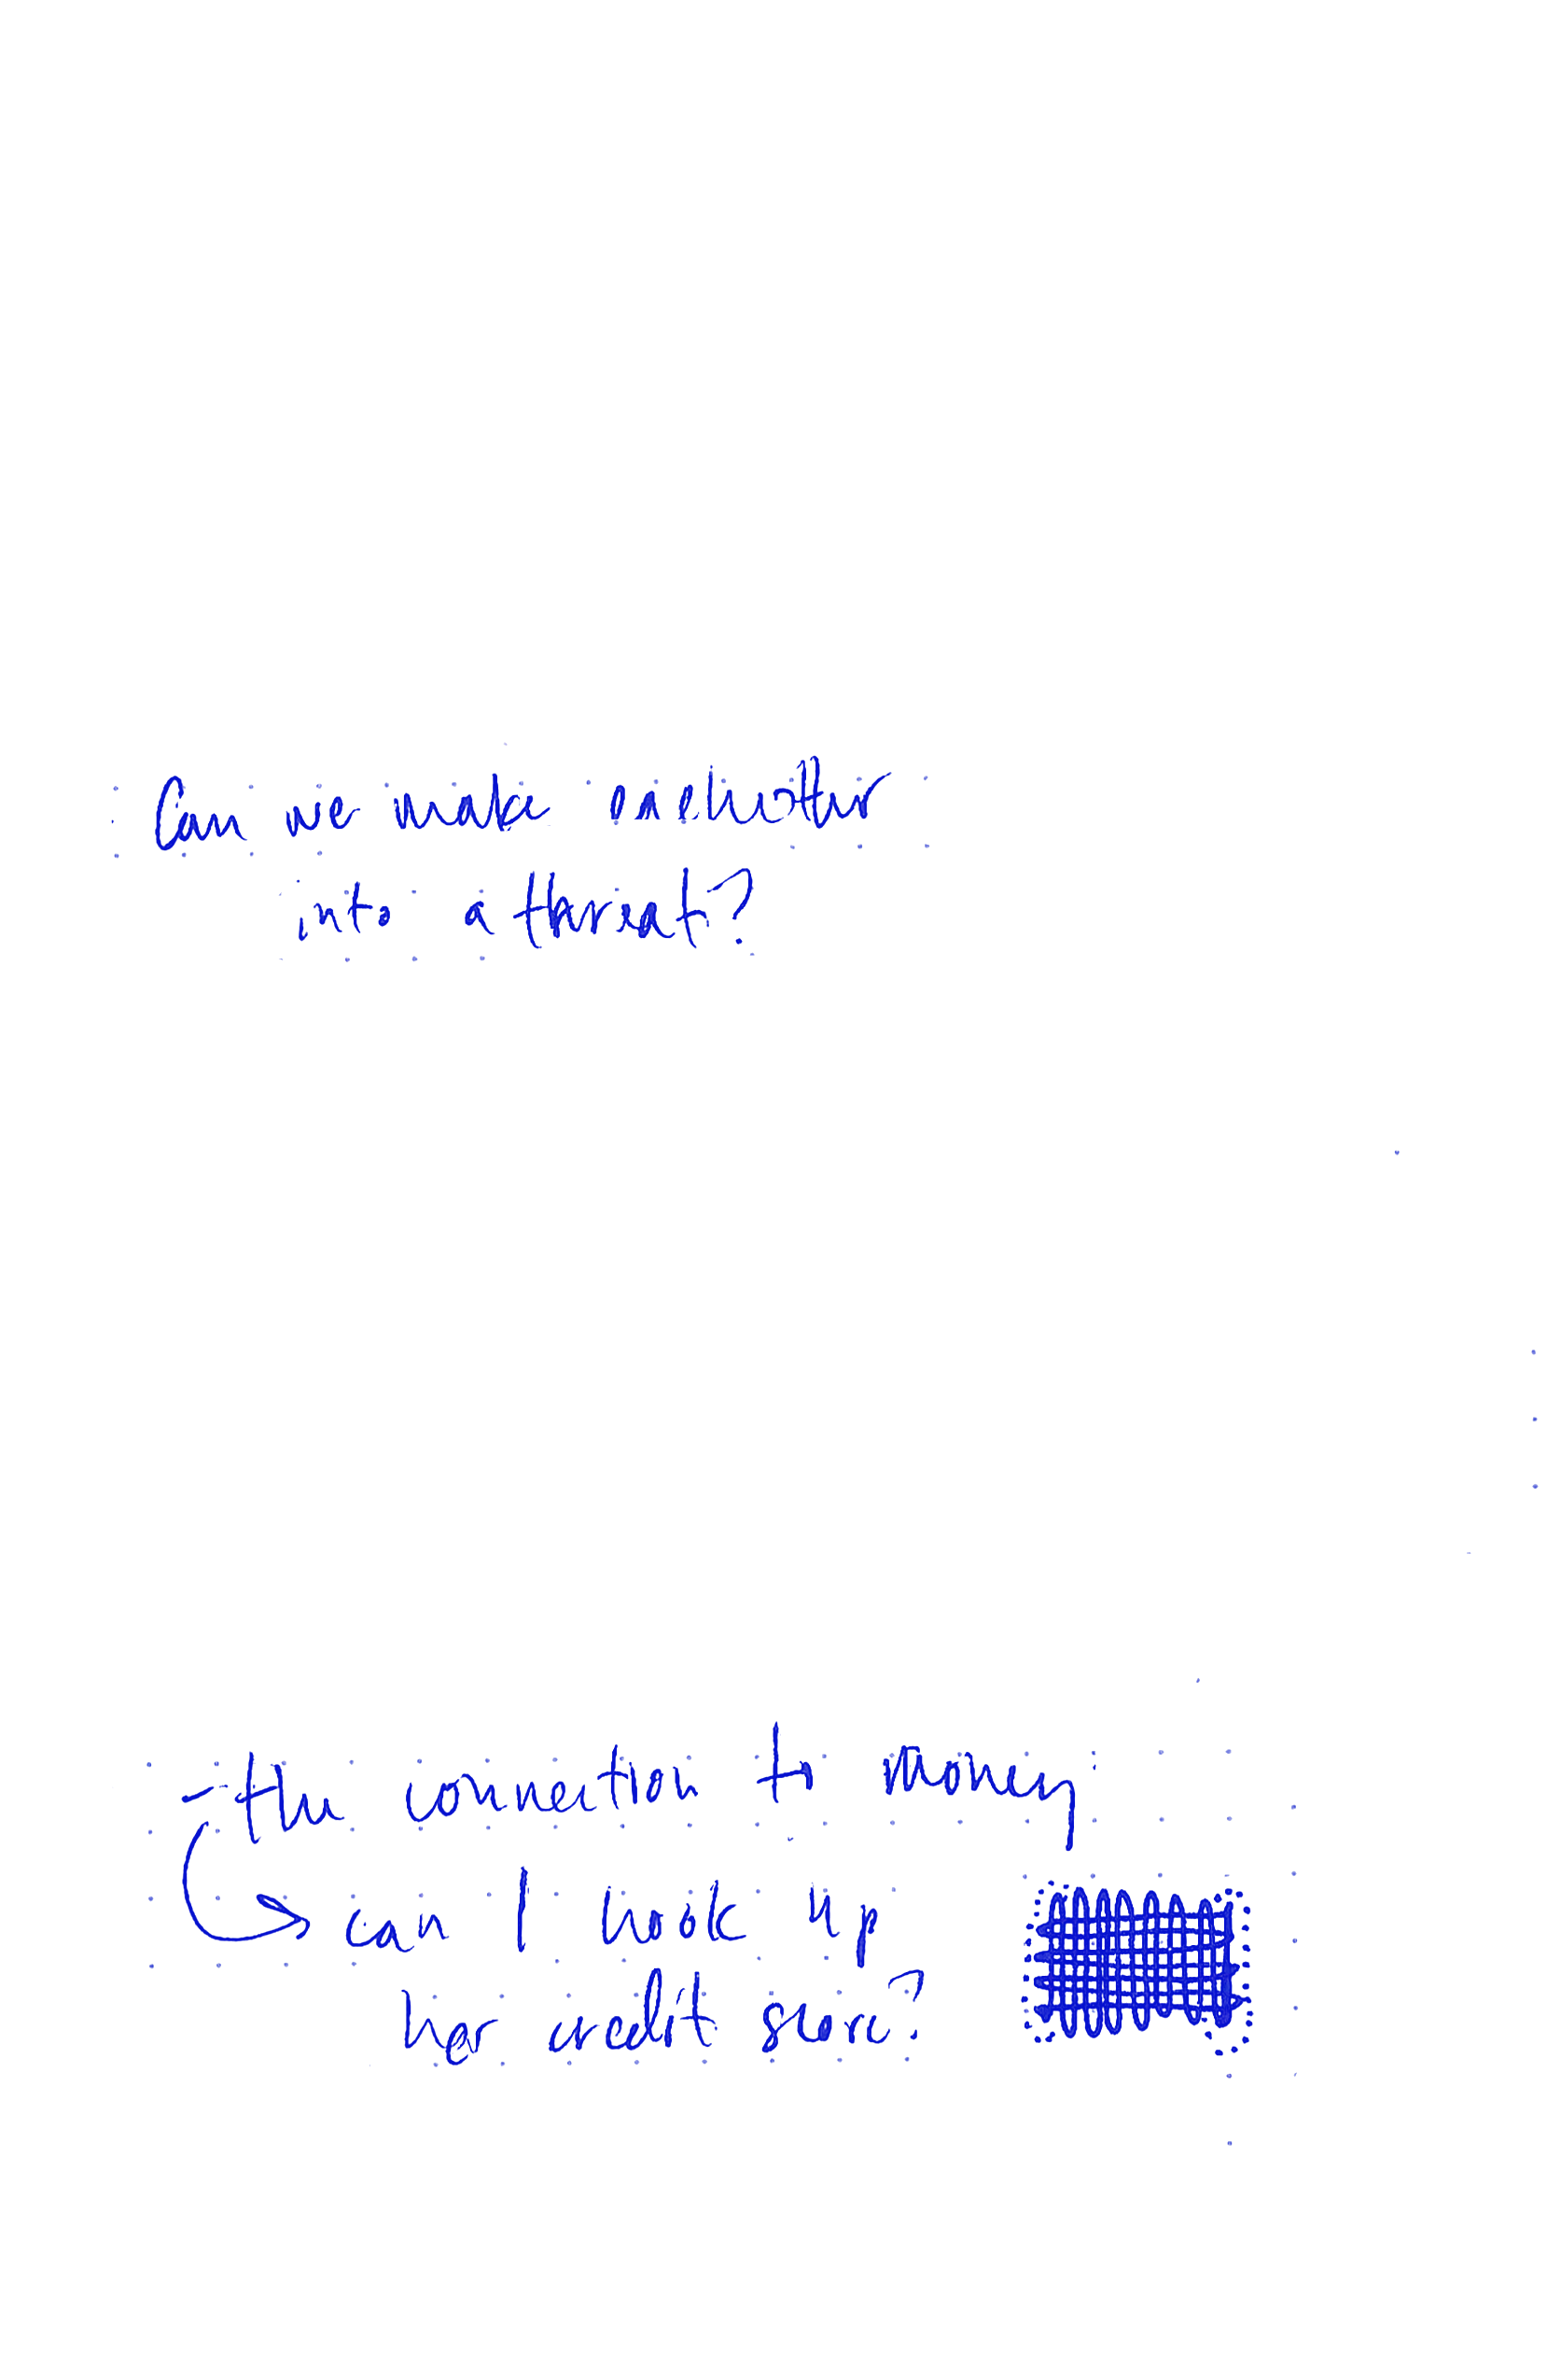 Can we make
into a threat?
- the connection to money
can I look up
her credit score?